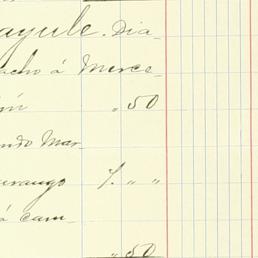 ayule. Dia-
acho á Merce-
ín " 50
ando Mar-
urango 1. " "
á cam-
" 50